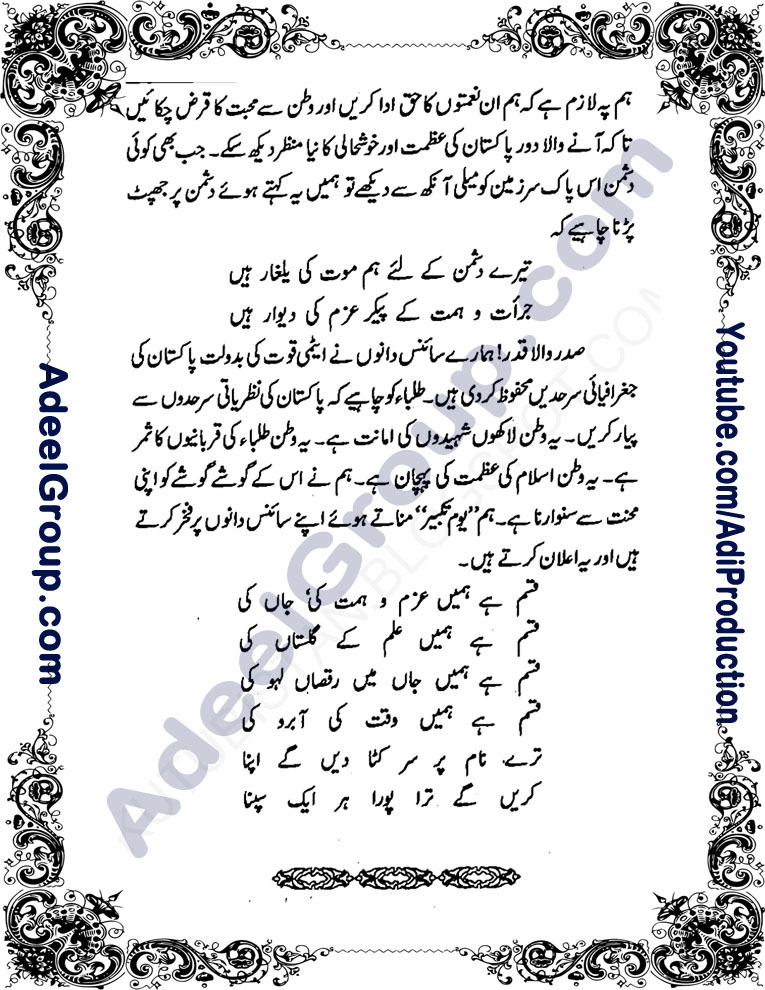 ہم پہ لازم ہے کہ ہم ان نعمتوں کا حق ادا کریں اور وطن سے محبت کا قرض چکائیں
تا کہ آنے والا دور پاکستان کی عظمت اور خوشحالی کا نیا منظر دیکھ سکے۔ جب بھی کوئی
دشمن اس پاک سرزمین کو میلی آنکھ سے دیکھے تو ہمیں یہ کہتے ہوئے دشمن پر جھپٹ
پڑنا چاہیے کہ
تیرے دشمن کے لئے ہم موت کی یلغار ہیں
جرأت و ہمت کے پیکر عزم کی دیوار ہیں
صدر والا قدر! ہمارے سائنس دانوں نے ایٹمی قوت کی بدولت پاکستان کی
جغرافیائی سرحدیں محفوظ کر دی ہیں۔ طلباء کو چاہیے کہ پاکستان کی نظریاتی سرحدوں سے
پیار کریں۔ یہ وطن لاکھوں شہیدوں کی امانت ہے۔ یہ وطن طلباء کی قربانیوں کا ثمر
ہے۔ یہ وطن اسلام کی عظمت کی پہچان ہے۔ ہم نے اس کے گوشے گوشے کو اپنی
محنت سے سنوارنا ہے۔ ہم ”یوم تکبیر“ مناتے ہوئے اپنے سائنس دانوں پر فخر کرتے
ہیں اور یہ اعلان کرتے ہیں۔
قسم ہے ہمیں عزم و ہمت کی، جاں کی
قسم ہے ہمیں علم کے گلستاں کی
قسم ہے ہمیں جاں میں رقصاں لہو کی
قسم ہے ہمیں وقت کی آبرو کی
ترے نام پر سر کٹا دیں گے اپنا
کریں گے ترا پورا ہر ایک سپنا
AdeelGroup.com
Youtube.com/AdiProduction
AdeelGroup.com